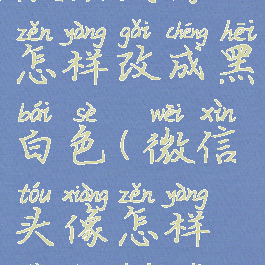 zěn yàng gǎi chéng hēi
怎样改成黑
bái sè wēi xìn
白色(微信
tóu xiàng zěn yàng
头像怎样